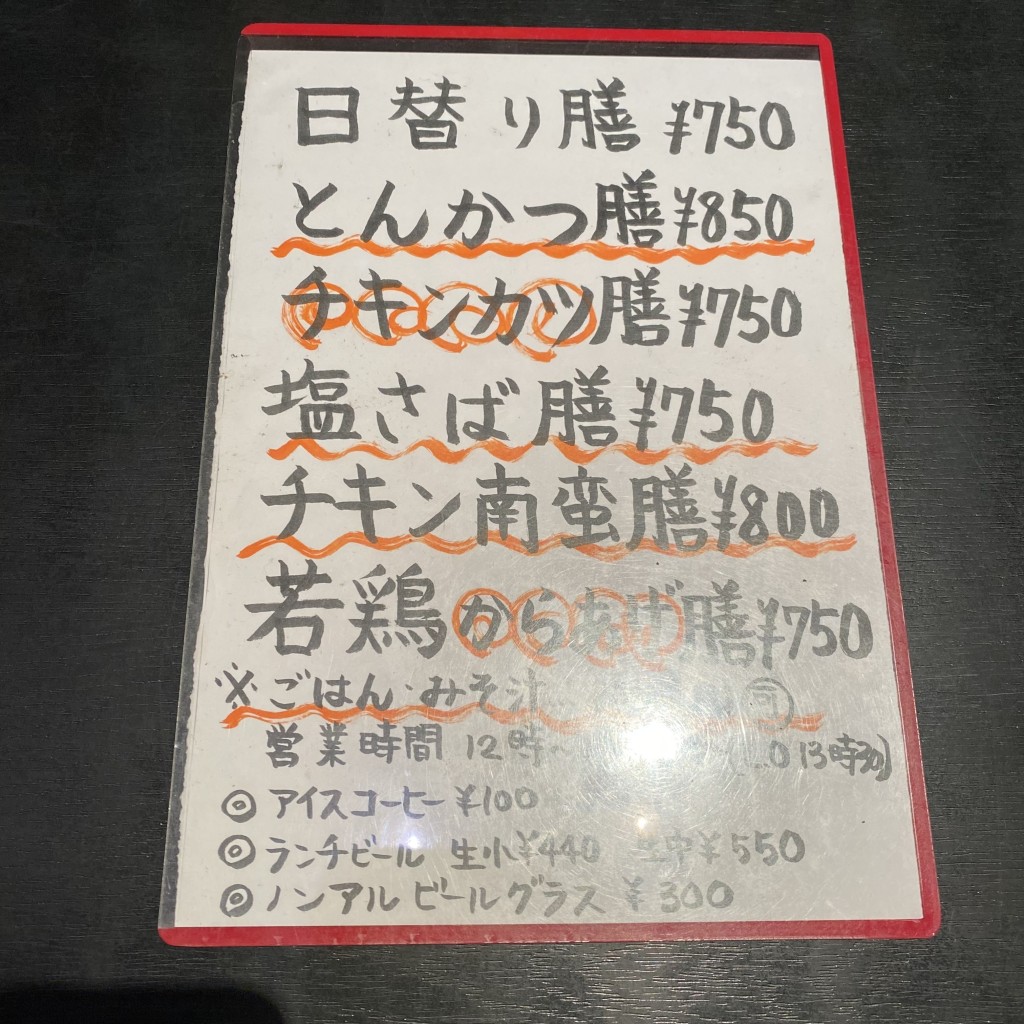 日替り膳 ¥750
とんかつ膳 ¥850
チキンカツ膳 ¥750
塩さば膳 ¥750
チキン南蛮膳 ¥800
若鶏からあげ膳 ¥750
※ごはん・みそ汁
営業時間 12時~ 13時30
◎アイスコーヒー ¥100
◎ランチビール 生小¥440 生中¥550
◎ノンアルビールグラス ¥300